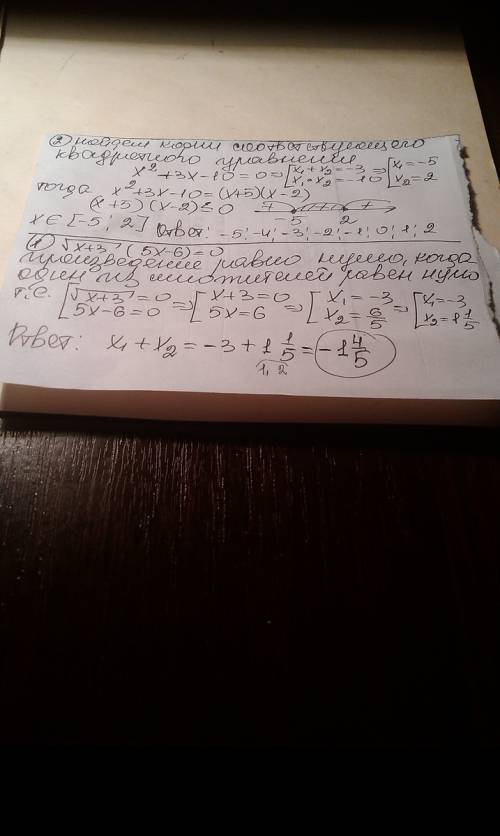 ② найдем корни соответствующего
квадратного уравнения
x²+3x-10=0 ⇒ [x₁+x₂=-3 x₁·x₂=-10 ⇒ [x₁=-5 x₂=2
тогда x²+3x-10=(x+5)(x-2)
(x+5)(x-2)≤0 + - + -5 2
x∈[-5;2] Ответ: -5;-4;-3;-2;-1;0;1;2
① √x+3 (5x-6)=0
произведение равно нулю, когда
один из множителей равен нулю
т.е. [√x+3=0 5x-6=0 ⇒ [x+3=0 5x=6 ⇒ [x₁=-3 x₂=6/5 ⇒ [x₁=-3 x₂=1 1/5
Ответ: x₁+x₂=-3+1 1/5=-1 4/5
1,2